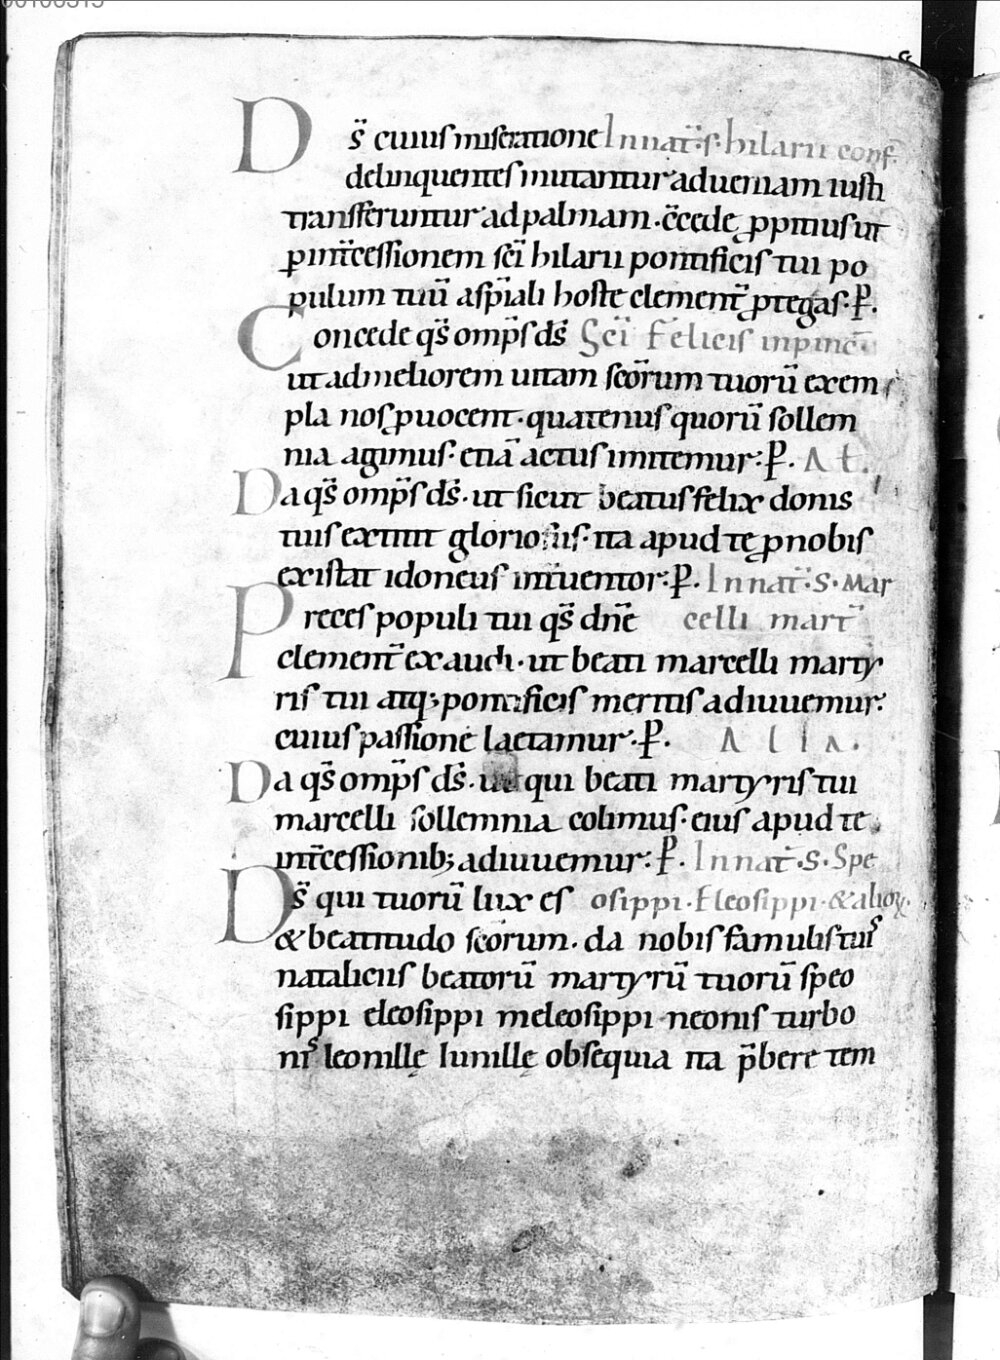 Ds̄ cuius miseratione In nat̄. s. hilarii conf.
delinquentes mutantur ad ueniam iusti
transferuntur ad palmam. c̄cede ꝓpitius ut
ꝑ int̄cessionem sc̄i hilarii pontificis tui po
pulum tuū a sp̄iali hoste clement̄ ꝓtegas. P̱.
Concede qs̄ omp̄s ds̄ Sc̄i Felicis in pinc̄.
ut ad meliorem uitam sc̄orum tuorū exem
pla nos ꝓuocent. quatenus quorū sollem
nia agimus. etiā actus imitemur: P̱. At.
Da qs̄ omp̄s ds̄. ut sicut beatus felix donis
tuis extitit gloriosus. ita apud tę ꝓ nobis
existat idoneus int̄uentor: P̱. In nat̄. S. Mar
Preces populi tui qs̄ dn̄e celli mart̄
clement̄ exaudi. ut beati marcelli marty
ris tui atq; pontificis meritis adiuuemur.
cuius passione laetamur. P̱. Alia.
Da qs̄ omp̄s ds̄. ut qui beati martyris tui
marcelli sollemnia colimus. eius apud te
int̄cessionib; adiuuemur: P̱. In nat̄. S. Spe
Ds̄ qui tuorū lux es osippi. Eleosippi. & alioꝝ.
& beatitudo sc̄orum. da nobis famulis tuis
nataliciis beatorū martyrū tuorū speo
sippi eleosippi meleosippi neonis turbo
nis leonillę iunillę obsequia ita p̄bere tem